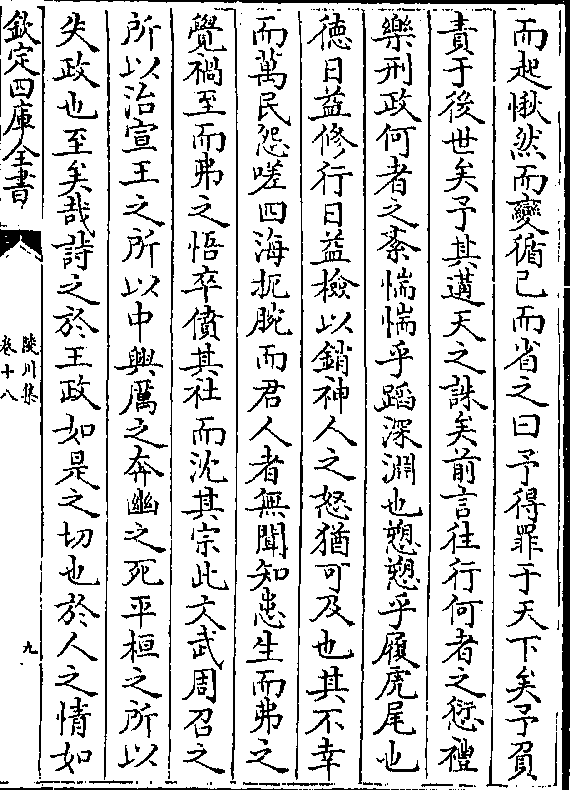 而起愀然而變循己而省之曰予得罪于天下矣予負
責于後世矣予其邁天之誅矣前言徃行何者之愆禮
樂刑政何者之紊惴惴乎蹈深淵也愬愬乎履虎尾也
徳日益修行日益檢以銷神人之怒猶可及也其不幸
而萬民怨嗟四海扼腕而君人者無聞知患生而弗之
覺禍至而弗之悟卒僨其社而沈其宗此文武周召之
所以治宣王之所以中興厲之奔幽之死平桓之所以
失政也至矣哉詩之於王政如是之切也於人之情如
欽定四庫全書
陵川集
卷十八
九